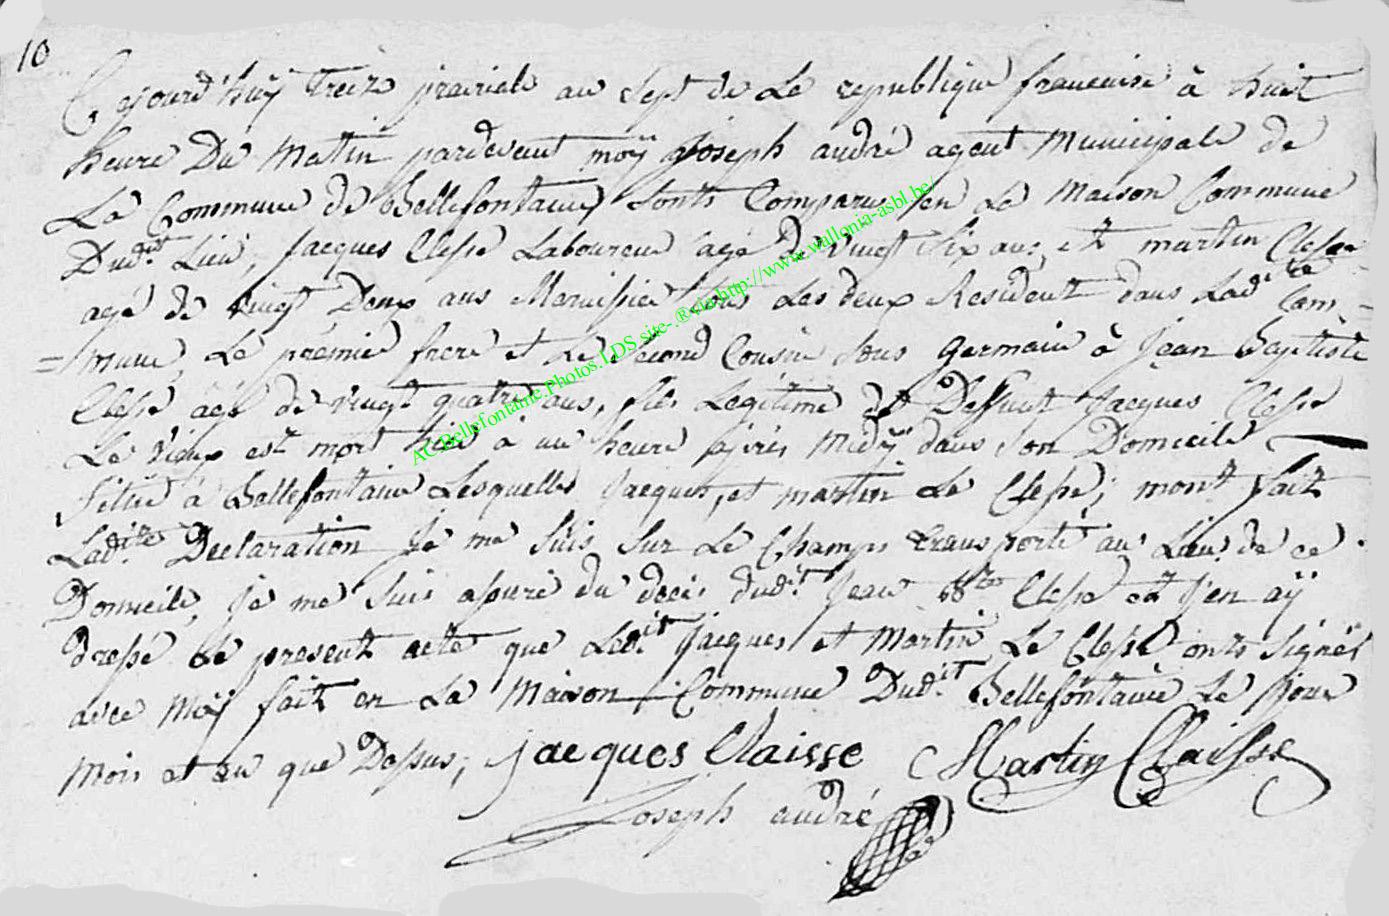 10
Cejourd'huÿ treize prairiale an sept de Le republique francaise à huit
heure Du Matin pardevent moÿ Joseph andré agent Municipale de
La Commune de Bellefontaine, sonts Comparue en La Maison Commune
Dud.it Lieu, Jacques Clesse Laboureur agé de vingt six ans, et martin Clesse
agé de vingt Deux ans Menuisier tous Les deux Resident dans Lad.ite Com
= mune, Le prémier frere et Le second Cousin sous germain à Jean Baptiste
Clesse agé de vingt quatre ans, fils Legitime de Deffunt Jacques Clesse
Le vieux est mort hier à une heure après Midÿ dans son Domicile
situé à Bellefontaine Lesquelles Jacques, et martin Le Clesse; mont fait
Lad.ite Declaration Je me suis sur Le Champs transporté au Lieu de ce
Domicile, Je me suis assuré du décès dud.it Jean Bte Clesse et J'en aÿ
dressé Le present acte que Led.it Jacques et Martin Le Clesse onts signés
avec Moÿ fait en La Maison Commune Dud.it Bellefontaine Le Jour
Mois et an que Dessus, Jacques Claisse Martin Claisse
Joseph andré
AC.Bellefontaine.Photos.LDS.site-.®©.http://www.wallonia-asbl.be/